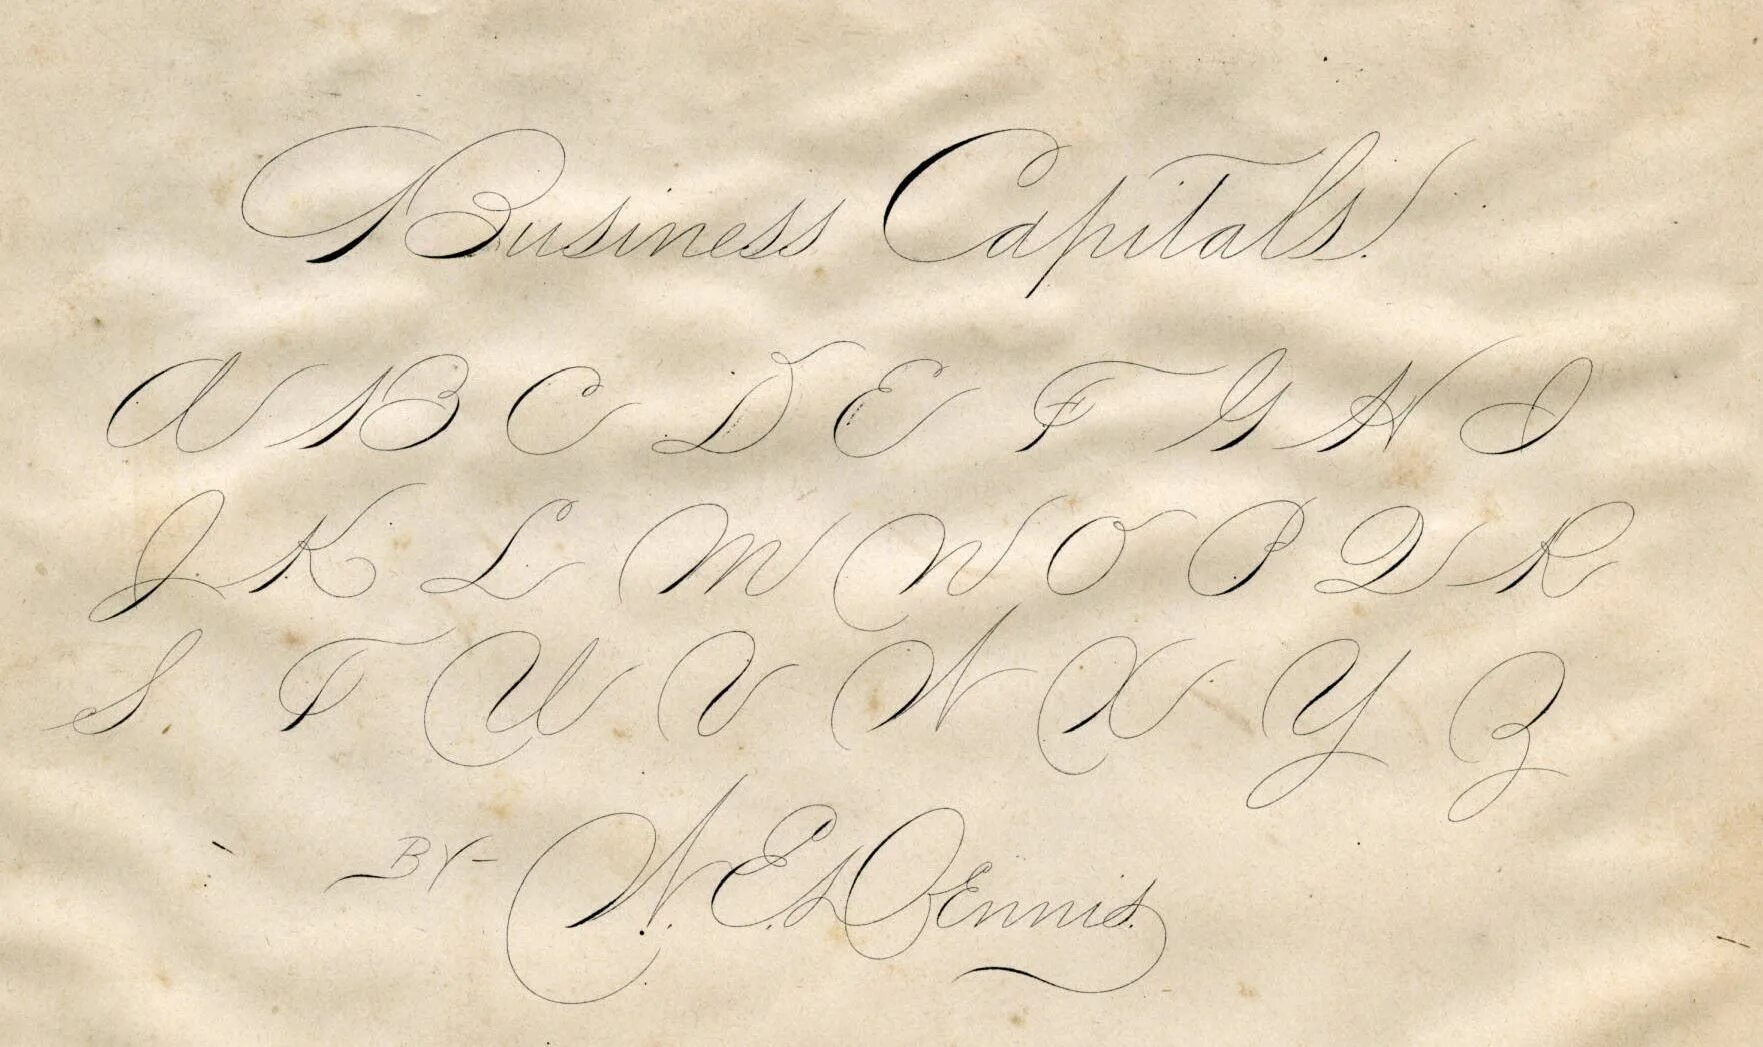 Business Capitals.
A B C D E F G H I
J K L M N O P Q R
S T U V W X Y Z
BY- W. E. Dennis.